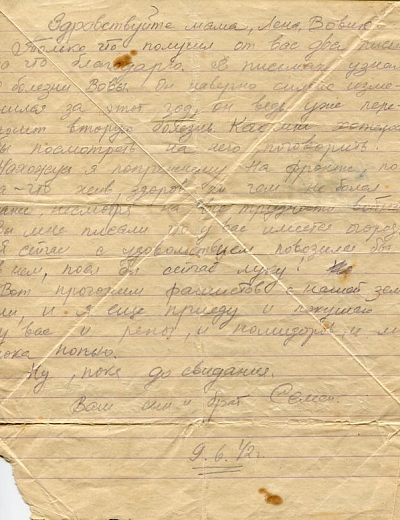 Здравствуйте мама, Лена, Вовик
Только что получил от вас два письм
за что благодарю. В письмах узнал
о болезни Вовы. Он наверно сильно
за этот год, он ведь уже пере-
вторую болезнь. Как мне
посмотреть на него, поговорить!
Нахожусь я по прежнему на фронте, по
ка-что жив, здоров, ни чем не болел
несмотря на все трудности
мне писали что у вас имеется огород,
с удовольствием повозился бы
в нем, поел бы луку!
Вот прогоним фашистов с нашей зем
ли, и я ещё приеду и покушаю
у вас и репы, и помидоров, и мо
лока попью.
Ну, пока до свидания.
Ваш сын и брат Сёмен.
9. 6. 42 г.